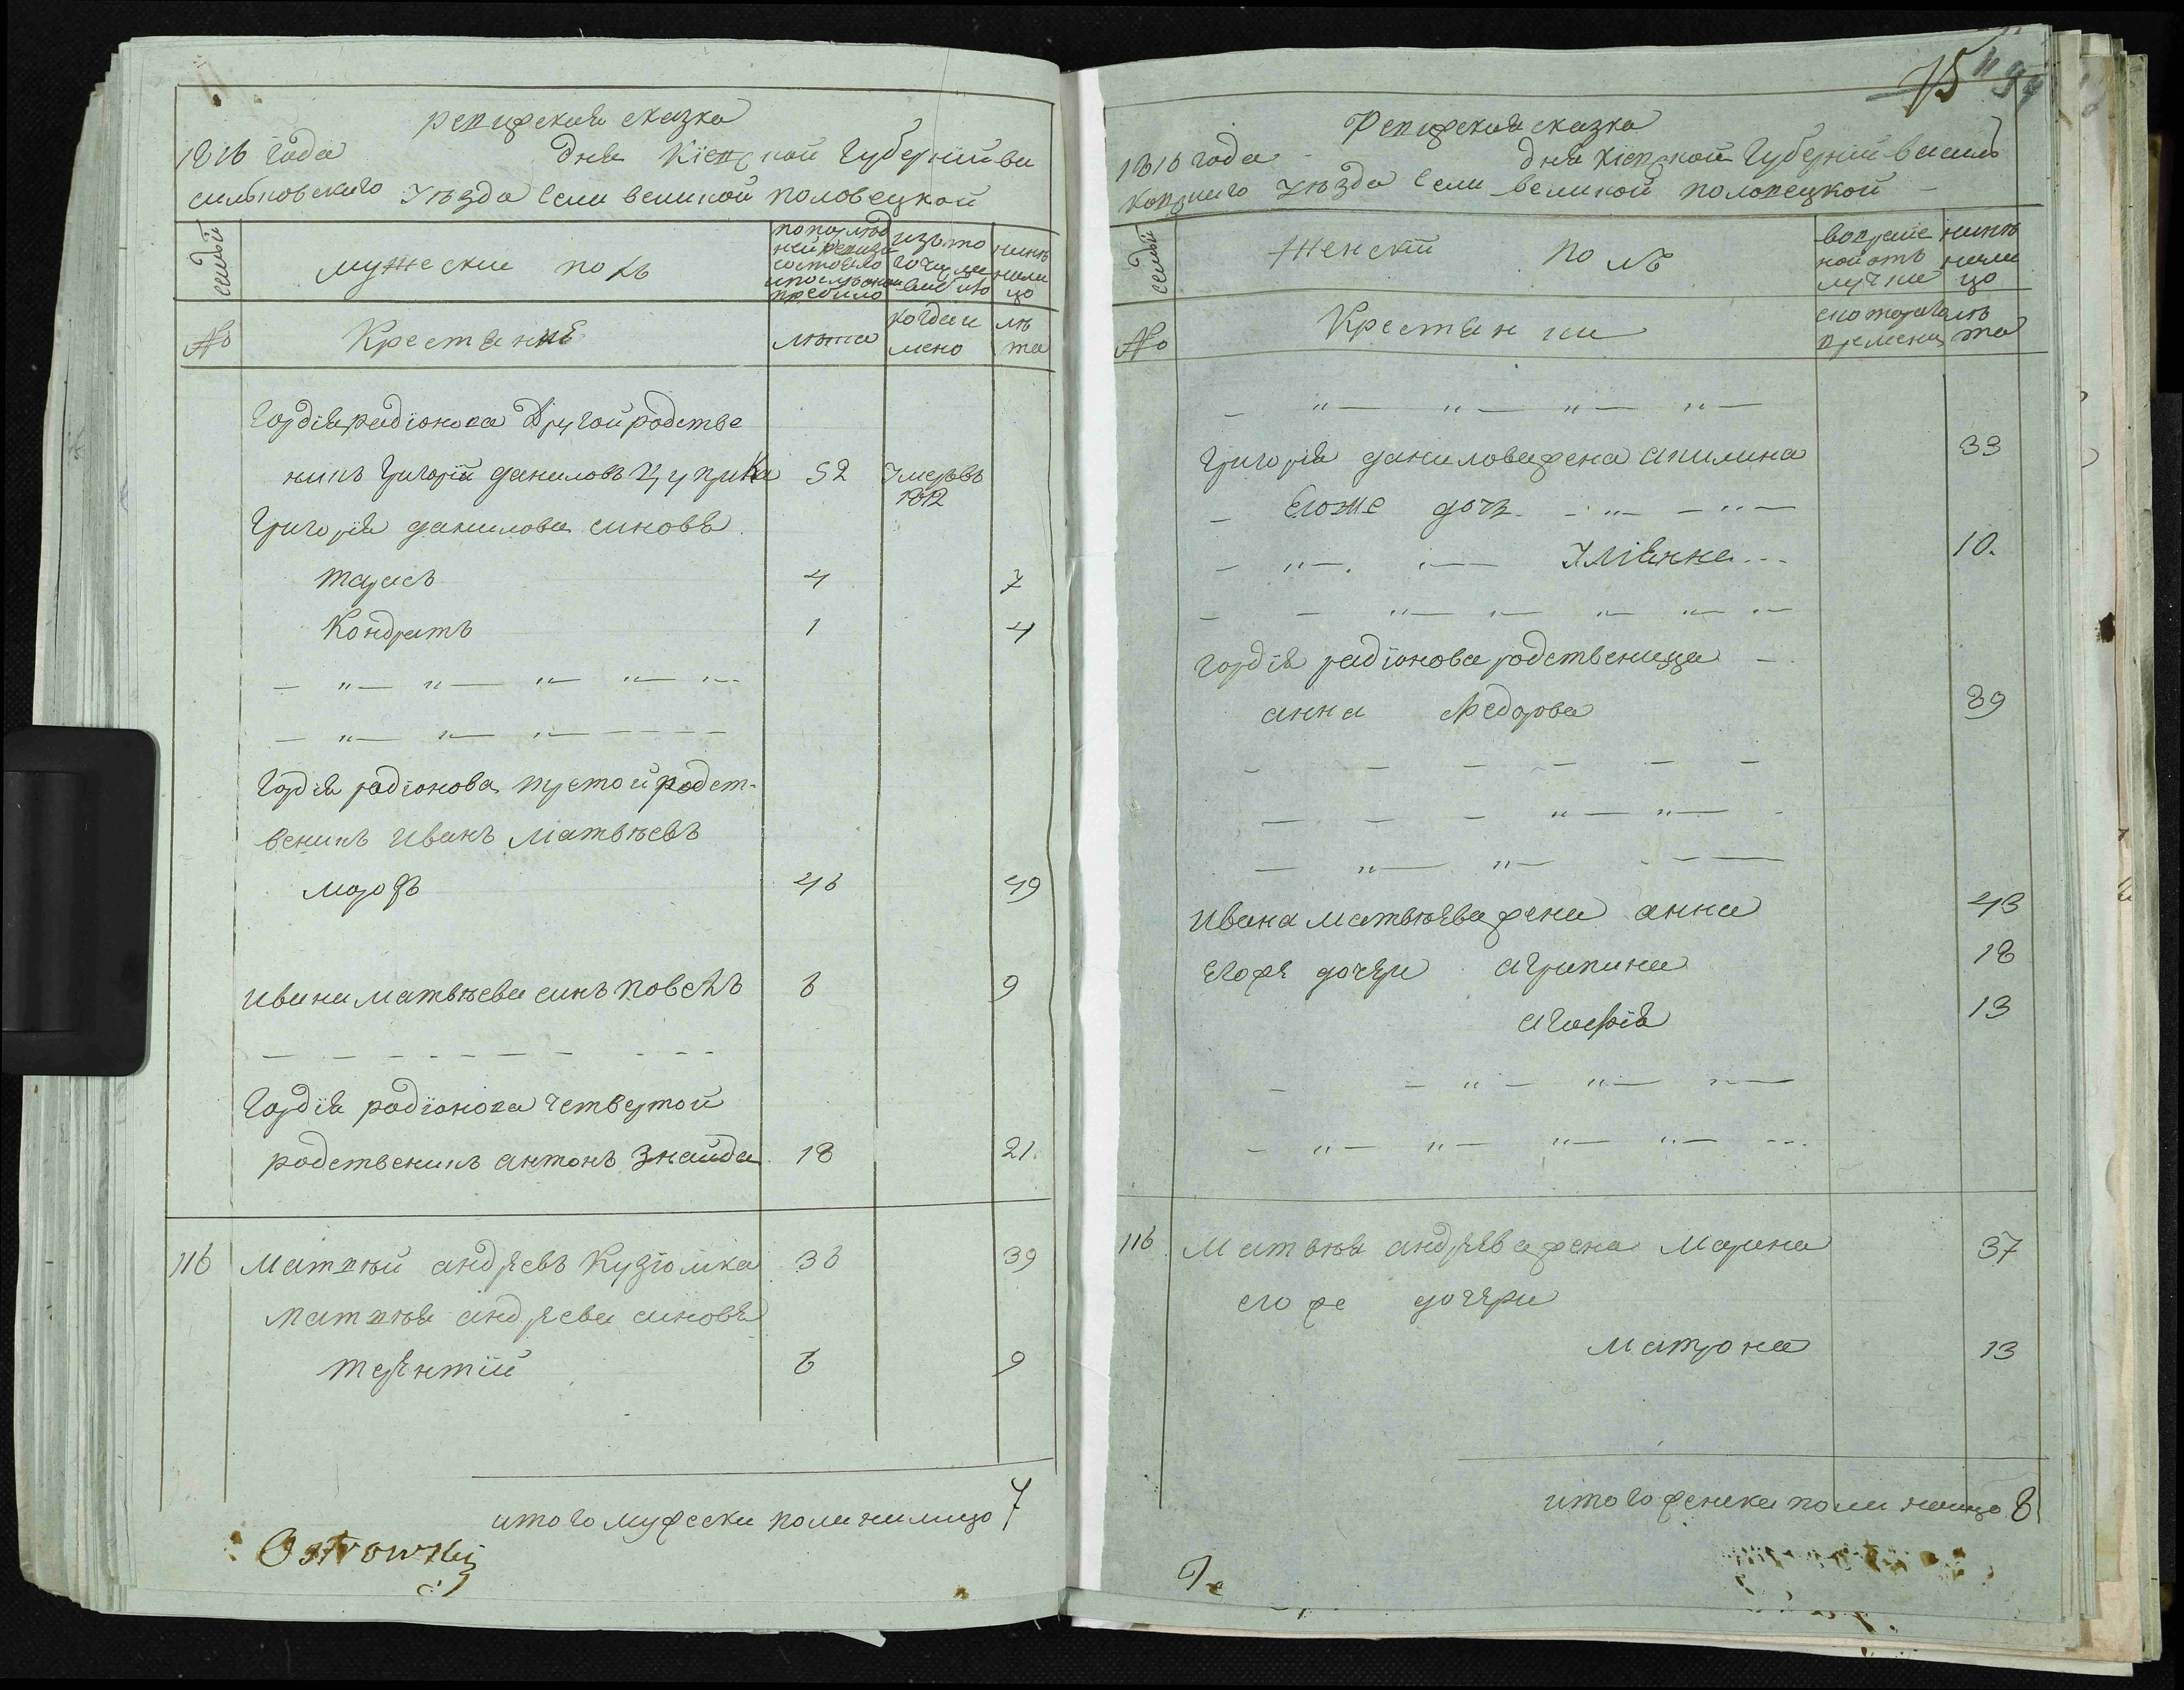 ревизская сказка
1816 года дня Кіевской Губерніи ва
сильковского Уезда Села великой половецкой
семьи
мужески полъ
по последней ревизіи состояло и после оной прибило
изъ того числа выбило
ныне налицо
№
Крестьяне
лета
когда имено
лета
Гордія радіонова Другой родстве
никъ Григорій даниловъ Цуприка 52 Умеръ въ 1812
Григорія данилова синовя
тарасъ 4 7
Кондратъ 1 4
Гордія радіонова третой родст-
веникъ Иванъ Матвѣевъ
морозъ 46 49
Ивана матвѣева синъ повелъ 6 9
Гордія радіонова четвертой
родственикъ антонъ Знайда 18 21
116 Матвѣй андреевъ Кузіомка 36 39
матвѣя андреева синовя
терентій 6 9
итого мужеска пола налицо 7
Ostrowskij
75 99
Ревизская сказка
1816 года дня Кіевской Губерніи василь
ковского Уезда Села великой половецкой
семьи
Женскій полъ
во временной отлучке
ныне налицо
№
Крестянки
с котораго времени
лета
Григорія данилова жена акилина 33
Егоже дочь
Уліянна 10.
гордія радіонова родственица
анна Федорова 39
Ивана матвѣева жена анна 43
Егоже дочери агрипина 18
агафія 13
116 Матвѣя андреева жена Марина 37
его же дочери
матрона 13
итого женска пола налицо 8